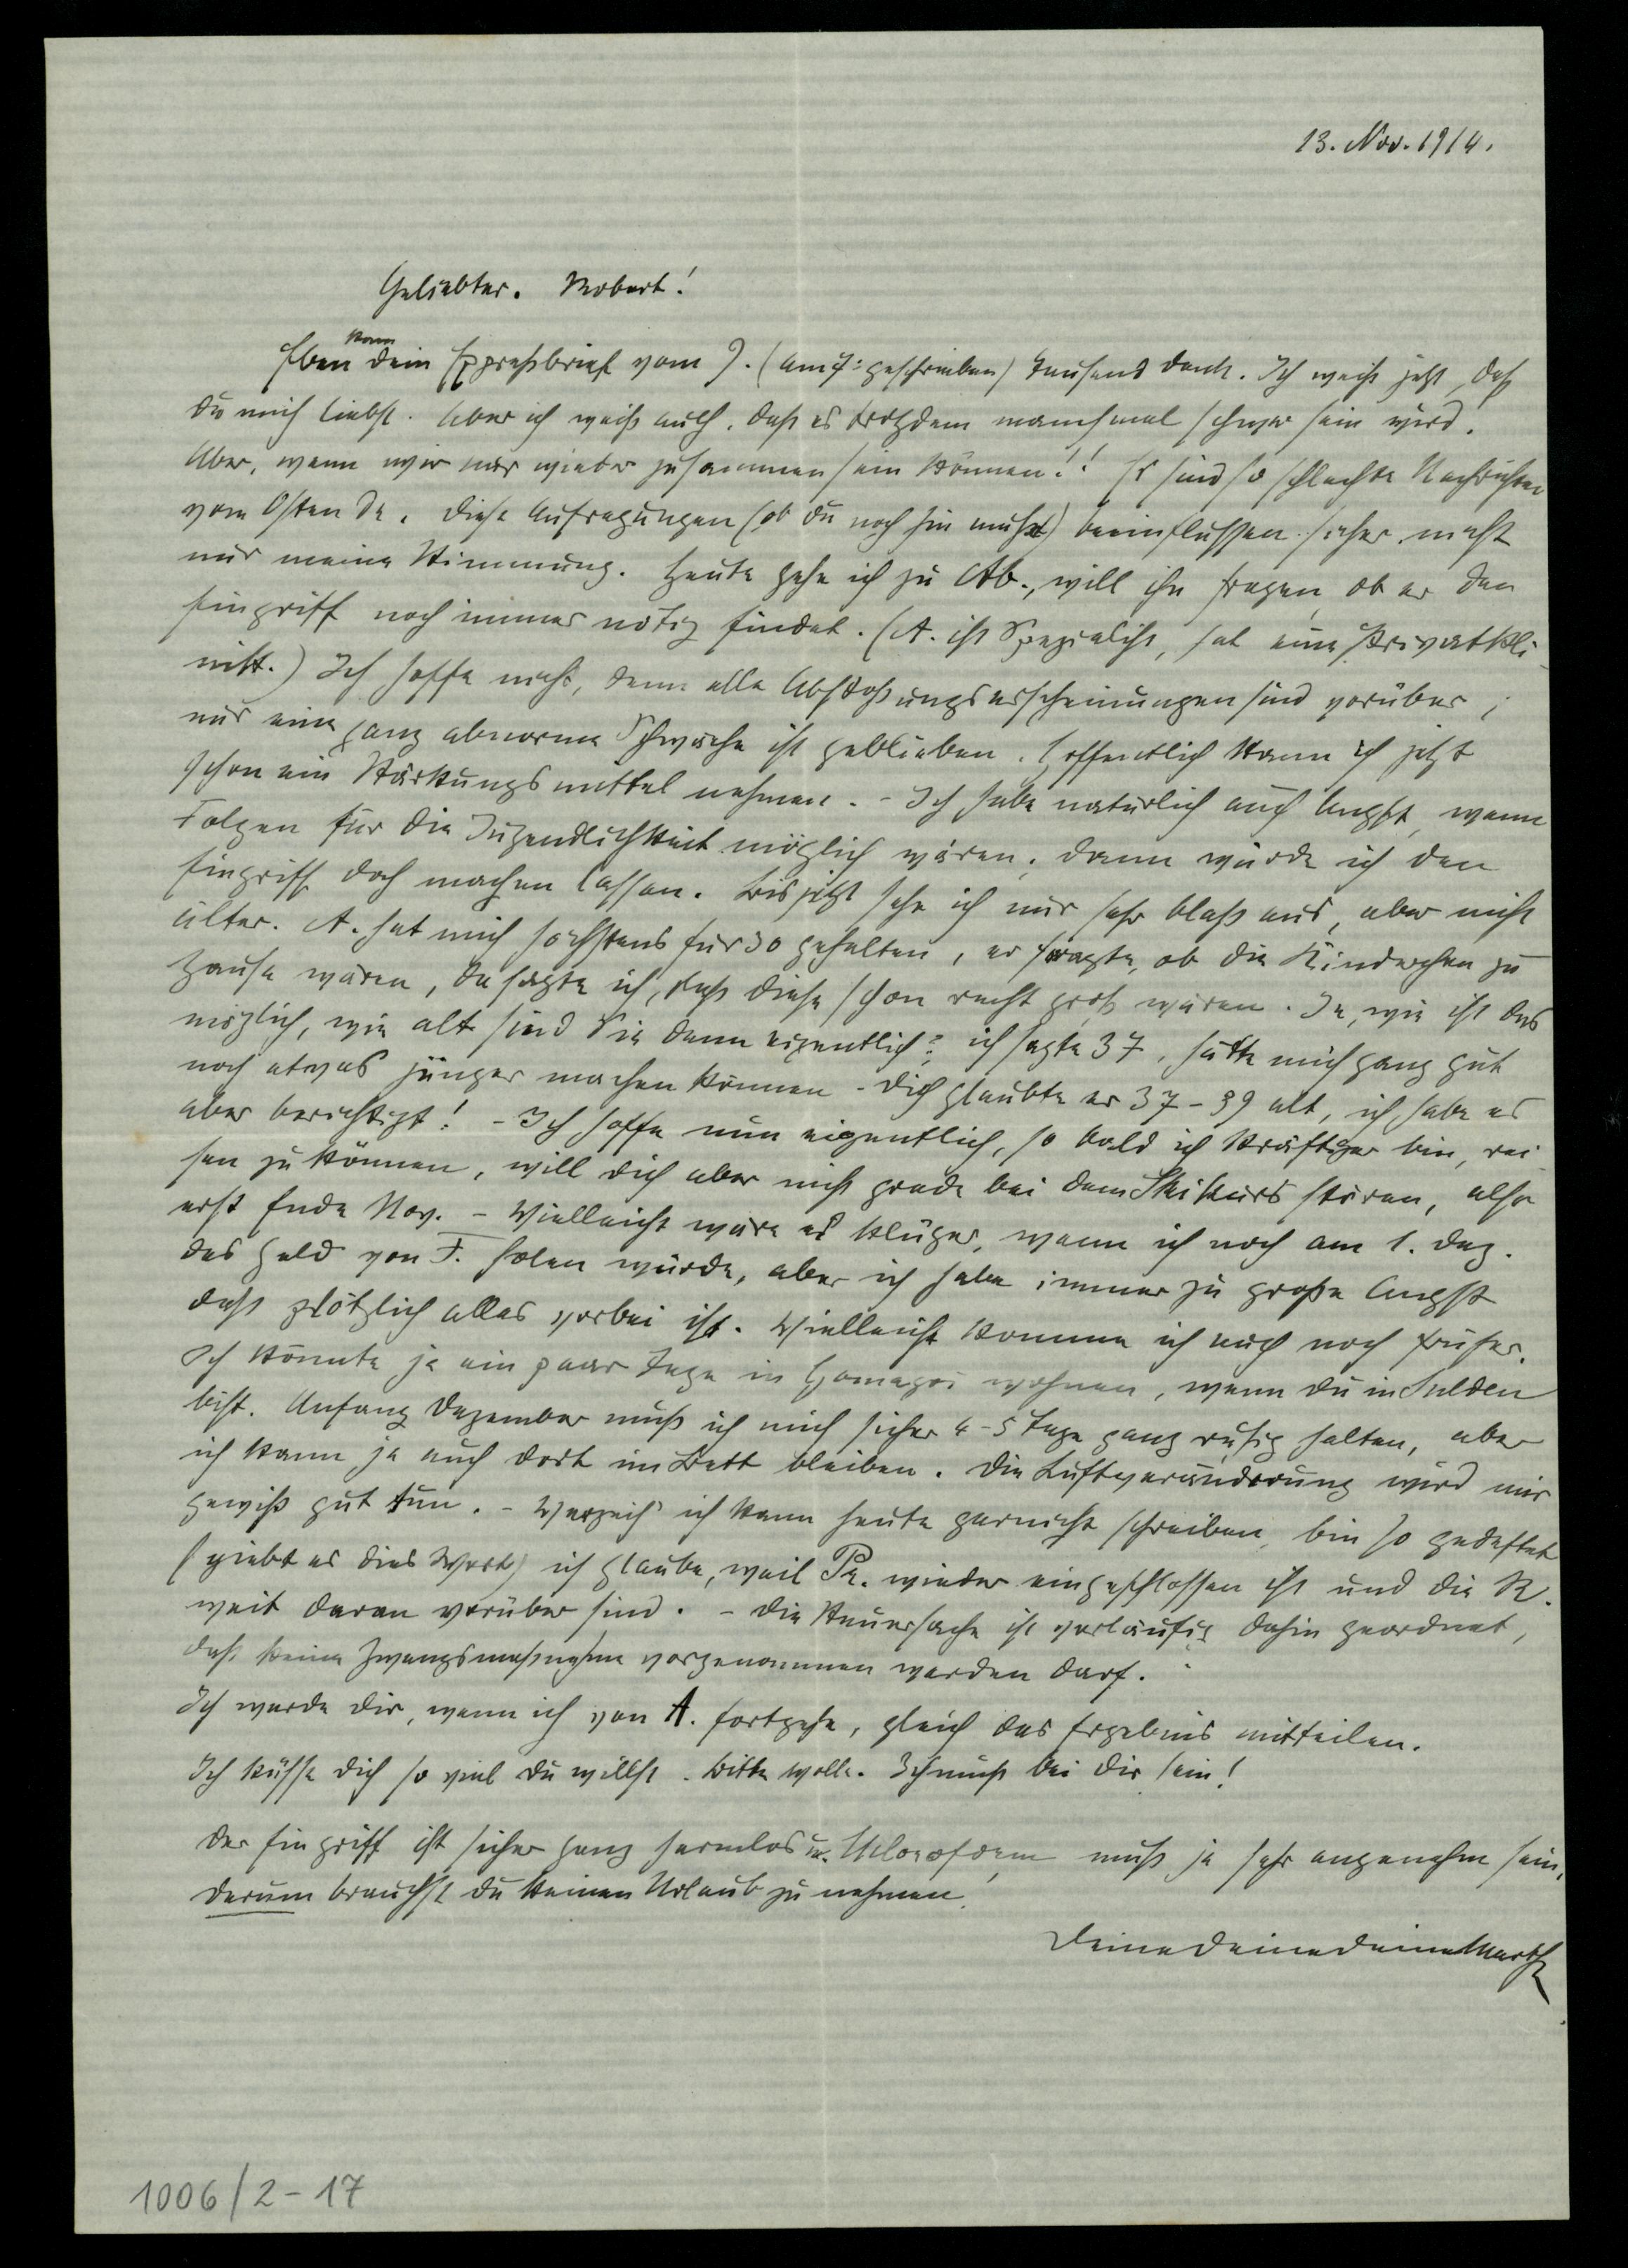 13. Nov. 1914.
Geliebter. Robert!
kam
Eben dein Expreßbrief vom 9. (am 7. geschrieben) tausend Dank. Ich weiß jetzt, daß
du mich liebst. Aber ich weiß auch, daß es trotzdem manchmal schwer sein wird.
Aber, wenn wir nur wieder zusammen sein können!! Es sind so schlechte Nachrichten
vom Osten da. Diese Aufregungen (ob du noch hin mußt) beeinflussen sicher nicht
nur meine Stimmung. Heute gehe ich zu Ab., will ihn fragen, ob er den
Eingriff noch immer nötig findet. (A. ist Spezialist, hat eine Privatkli-
nik.) Ich hoffe nicht, denn alle Abstoßungserscheinungen sind vorüber;
nur eine ganz abnorme Schwäche ist geblieben. Hoffentlich kann ich jetzt
schon ein Stärkungsmittel nehmen. - Ich habe natürlich auch Angst, wenn
Folgen für die Jugendlichkeit möglich wären, dann würde ich den
Eingriff doch machen lassen. Bis jetzt sehe ich nur sehr blaß aus, aber nicht
älter. A. hat mich höchstens für 30 gehalten, er fragte, ob die Kinderchen zu
Hause wären, da sagte ich, daß diese schon recht groß wären. Ja, wie ist das
möglich, wie alt sind Sie denn eigentlich? ich sagte 37, hätte mich ganz gut
noch etwas jünger machen können - dich glaubte er 37-39 alt, ich habe es
aber berichtigt! - Ich hoffe nun eigentlich, so bald ich kräftiger bin, rei-
sen zu können, will dich aber nicht grade bei dem Skikurs stören, also
erst Ende Nov. - Vielleicht wäre es klüger, wenn ich noch am 1. Dez.
das Geld von F. holen würde, aber ich habe immer zu große Angst
daß plötzlich alles vorbei ist. Vielleicht komme ich auch noch früher.
Ich könnte ja ein paar Tage in Gomagoi wohnen, wenn du in Sulden
bist. Anfang Dezember muß ich mich sicher 4-5 Tage ganz ruhig halten, aber
ich kann ja auch dort im Bett bleiben. Die Luftveränderung wird mir
gewiß gut tun. - Verzeih' ich kann heute garnicht schreiben, bin so gedeftet
(giebt es dies Wort) ich glaube, weil Pr. wieder eingeschlossen ist und die R.
weit daran vorüber sind. - Die Steuersache ist vorläufig dahin geordnet,
daß keine Zwangsmaßnahme vorgenommen werden darf.
Ich werde dir, wenn ich von A. fortgehe, gleich das Ergebnis mitteilen.
Ich küsse dich so viel du willst. Bitte wolle. Ich muß bei dir sein!
Der Eingriff ist sicher ganz harmlos u. Chloroform muß ja sehr angenehm sein,
darum brauchst du keinen Urlaub zu nehmen.
Deine deine deine Martha
1006/2-17